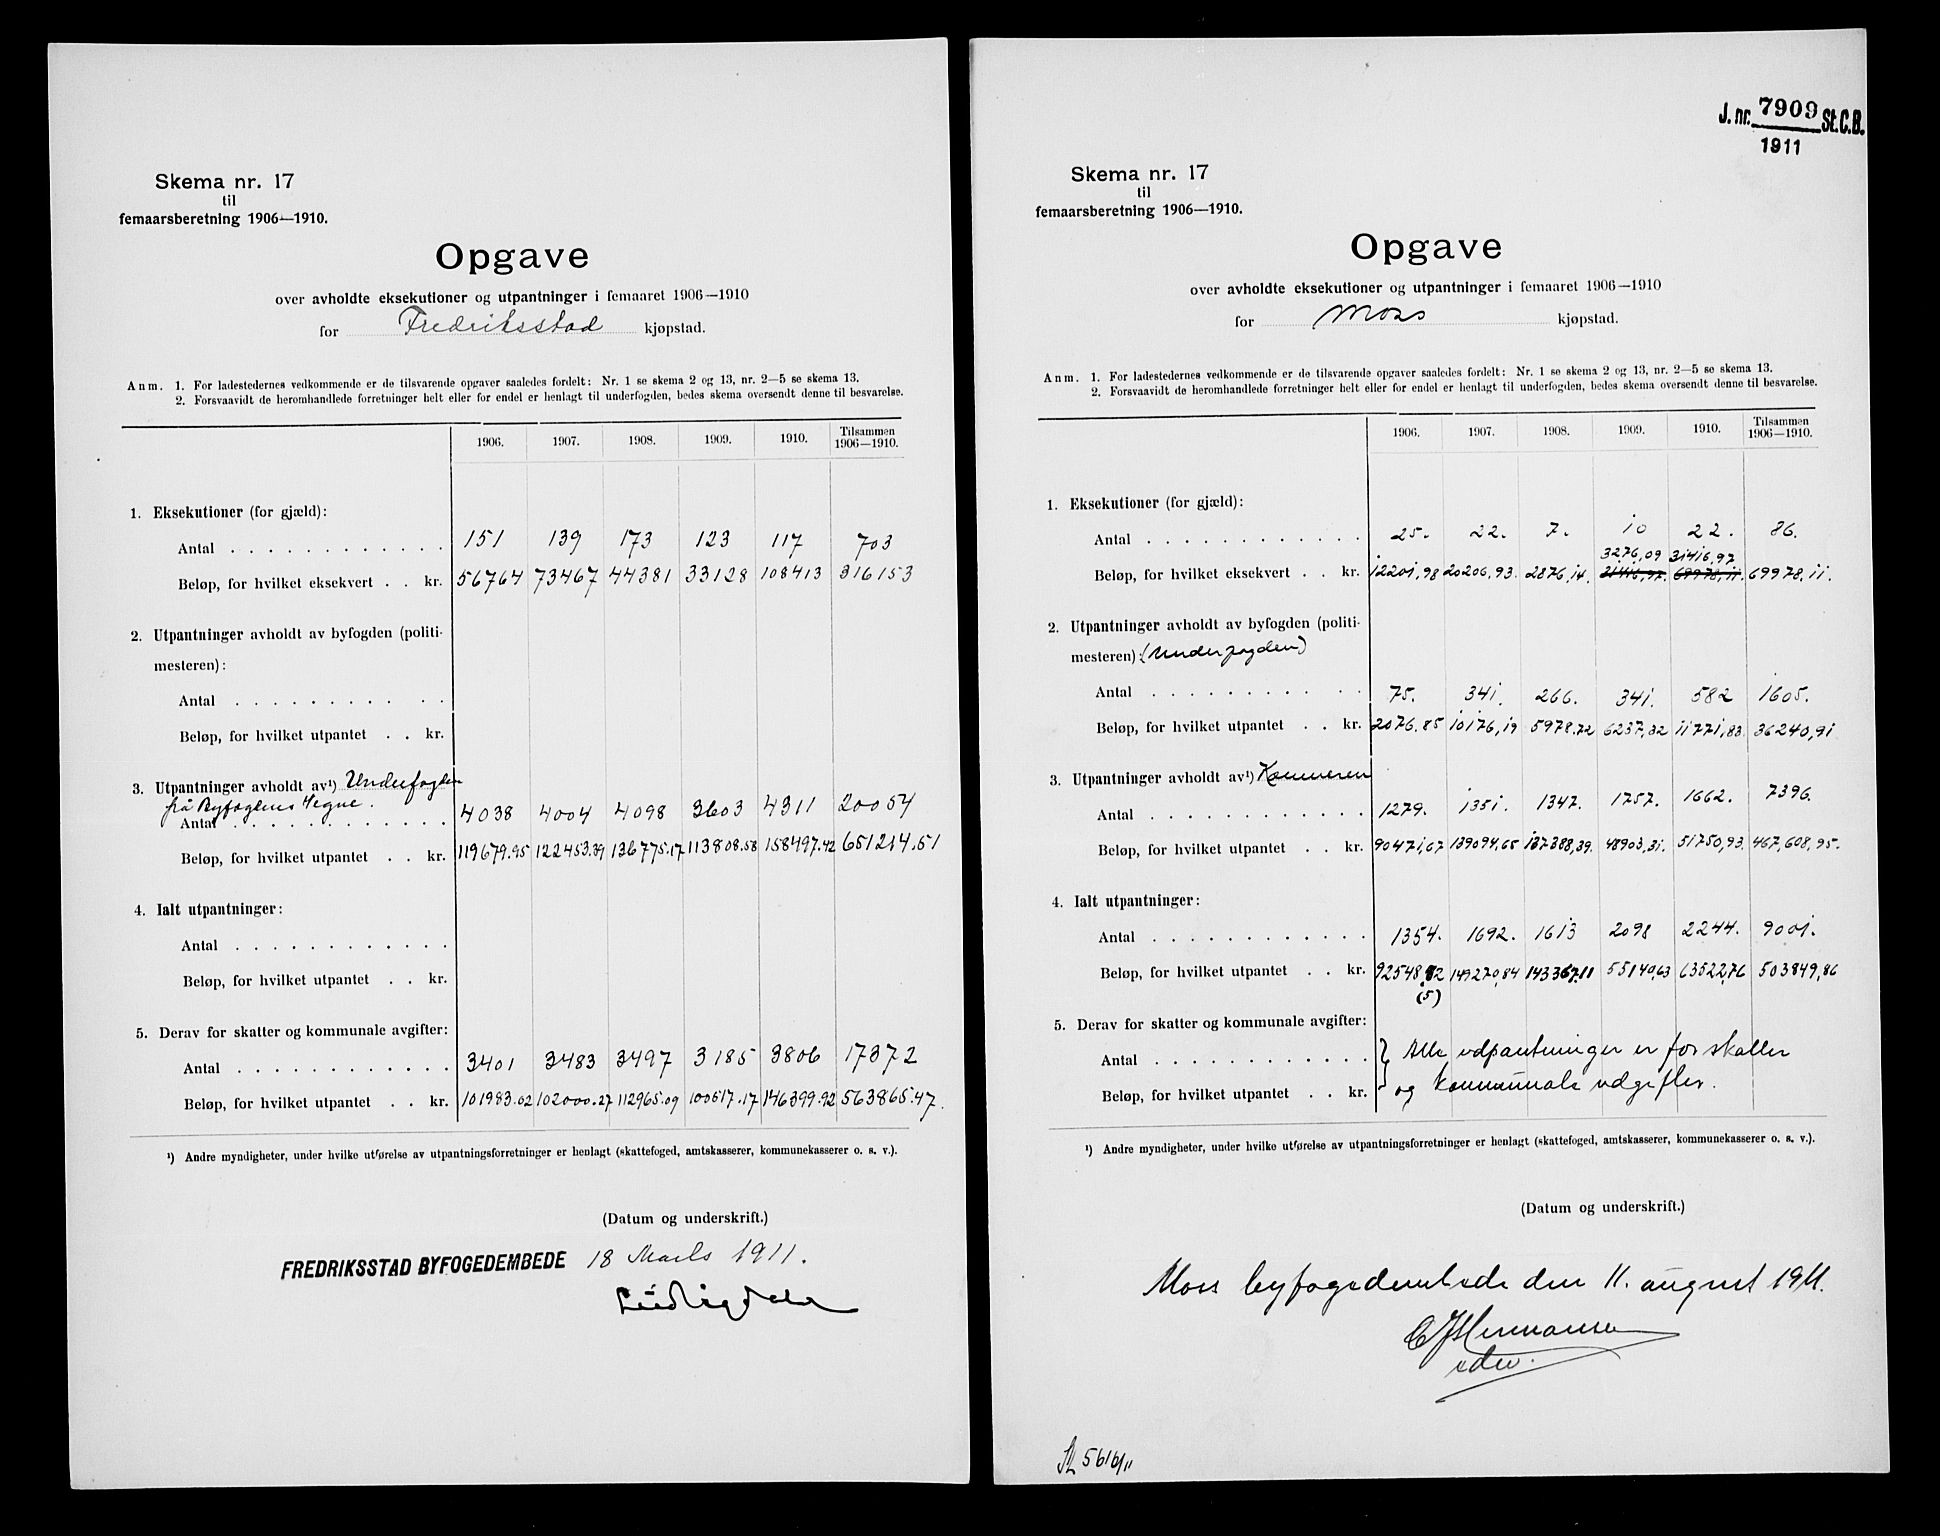 Skema nr. 17
til
femaarsberetning 1906—1910.
Opgave
over avholdte eksekutioner og utpantninger i femaaret 1906—1910
for Fredriksstad kjøpstad.
Anm. 1. For ladestedernes vedkommende er de tilsvarende opgaver saaledes fordelt: Nr. 1 se skema 2 og 13, nr. 2—5 se skema 13.
2. Forsvaavidt de heromhandlede forretninger helt eller for endel er henlagt til underfogden, bedes skema oversendt denne til besvarelse.
1906. 1907. 1908. 1909. 1910. Tilsammen 1906—1910.
1. Eksekutioner (for gjæld):
Antal . . . . . . . . . . . . 151 139 173 123 117 703
Beløp, for hvilket eksekvert . . kr. 56764 73467 44381 33128 108413 316153
2. Utpantninger avholdt av byfogden (politi-
mesteren):
Antal . . . . . . . . . . .
Beløp, for hvilket utpantet . . kr.
3. Utpantninger avholdt av¹) Underfogden
på Byfogdens Vegne.
Antal . . . . . . . . . . . . 4038 4004 4098 3603 4311 20054
Beløp, for hvilket utpantet . . kr. 119679.95 122453.39 136775.17 113808.58 158497.42 651214.51
4. Ialt utpantninger:
Antal . . . . . . . . . . . .
Beløp, for hvilket utpantet . . kr.
5. Derav for skatter og kommunale avgifter:
Antal . . . . . . . . . . . . 3401 3483 3497 3185 3806 17372
Beløp, for hvilket utpantet . . kr. 101983.02 102000.27 112965.09 100517.17 146399.92 563865.47.
¹) Andre myndigheter, under hvilke utførelse av utpantningsforretninger er henlagt (skattefoged, amtskasserer, kommunekasserer o. s. v.).
(Datum og underskrift.)
FREDRIKSSTAD BYFOGEDEMBEDE 18 Marts 1911.
J. nr. 7909 St.C.B.
1911
Skema nr. 17
til
femaarsberetning 1906—1910.
Opgave
over avholdte eksekutioner og utpantninger i femaaret 1906—1910
for Moss kjøpstad.
Anm. 1. For ladestedernes vedkommende er de tilsvarende opgaver saaledes fordelt: Nr. 1 se skema 2 og 13, nr. 2—5 se skema 13.
2. Forsvaavidt de heromhandlede forretninger helt eller for endel er henlagt til underfogden, bedes skema oversendt denne til besvarelse.
1906. 1907. 1908. 1909. 1910. Tilsammen 1906—1910.
1. Eksekutioner (for gjæld):
Antal . . . . . . . . . . . . 25. 22. 7. 10 22. 86.
3276,09 31416,97
Beløp, for hvilket eksekvert . . kr. 12201,98 20206,93. 2876,14. 31416,97. 69978,11. 69978,11.
2. Utpantninger avholdt av byfogden (politi-
mesteren): (Underfogden)
Antal . . . . . . . . . . . 75. 341. 266. 341. 582 1605.
Beløp, for hvilket utpantet . . kr. 2076.85 10176,19 5978.72 6237,32 11771,83 36240,91
3. Utpantninger avholdt av¹) Kæmneren
Antal . . . . . . . . . . . . 1279. 1351. 1347. 1757. 1662. 7396.
Beløp, for hvilket utpantet . . kr. 90471,67 139094,65 137388,39. 48903,31. 51750,93. 467,608,95.
4. Ialt utpantninger:
Antal . . . . . . . . . . . . 1354. 1692. 1613 2098 2244. 9001.
Beløp, for hvilket utpantet . . kr. 92548,82 149270,84 143367,11 55140,63 63522,76 503849,86
(5)
5. Derav for skatter og kommunale avgifter:
Antal . . . . . . . . . . . . Alle udpantninger er for skatter
Beløp, for hvilket utpantet . . kr. og kommunale udgifter.
¹) Andre myndigheter, under hvilke utførelse av utpantningsforretninger er henlagt (skattefoged, amtskasserer, kommunekasserer o. s. v.).
(Datum og underskrift.)
Moss byfogedembede den 11. august 1911.
5616/11